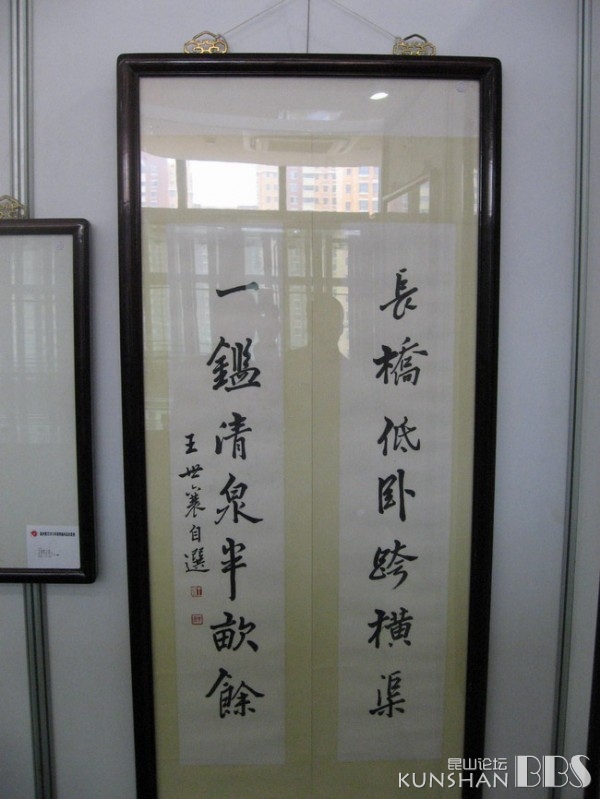 長橋低卧跨橫渠
一鑑清泉半畝餘
王世襄自選
昆山论坛
KUNSHAN BBS